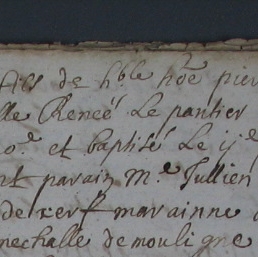 fils de h.ble hõe pier
lle Reneé Le pantier
o.e et baptisé Le ij.e
nt parain M.e Jullien
de xerf marainne
nechalle de mouligne